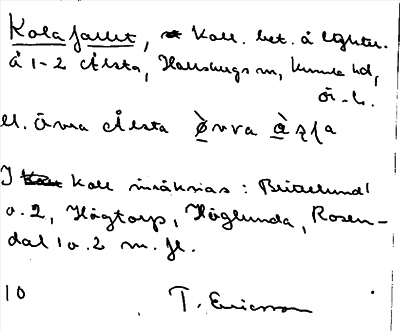 Kolafallet, koll. bet. å lägher.
å 1-2 Ålsta, Hallsbergs sn, Kumla hd,
Ör. l.
El. Övra Ålsta
I koll inräknas: Brittelund 1
o. 2, Högtorp, Höglunda, Rosen-
dal 1 o. 2 m. fl.
10 T. Ericsson